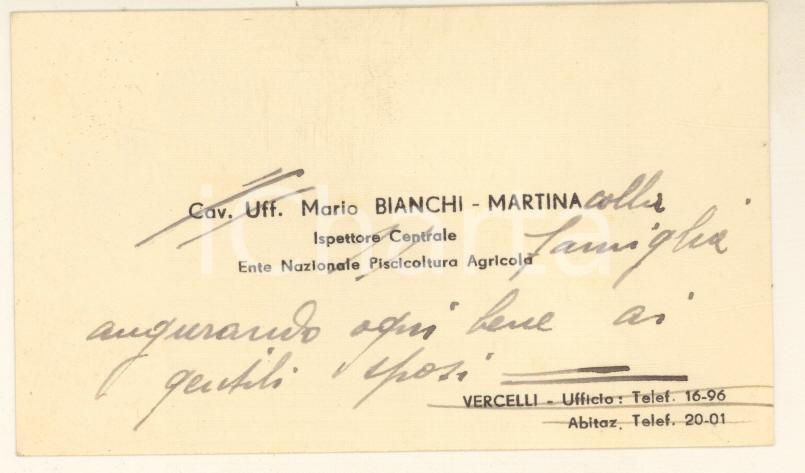 Cav. Uff. Mario BIANCHI - MARTINA colla
Ispettore Centrale famiglia
Ente Nazionale Piscicoltura Agricola
augurando ogni bene ai
gentili sposi
VERCELLI - Ufficio: Telef. 16-96
Abitaz. Telef. 20-01
iCharta